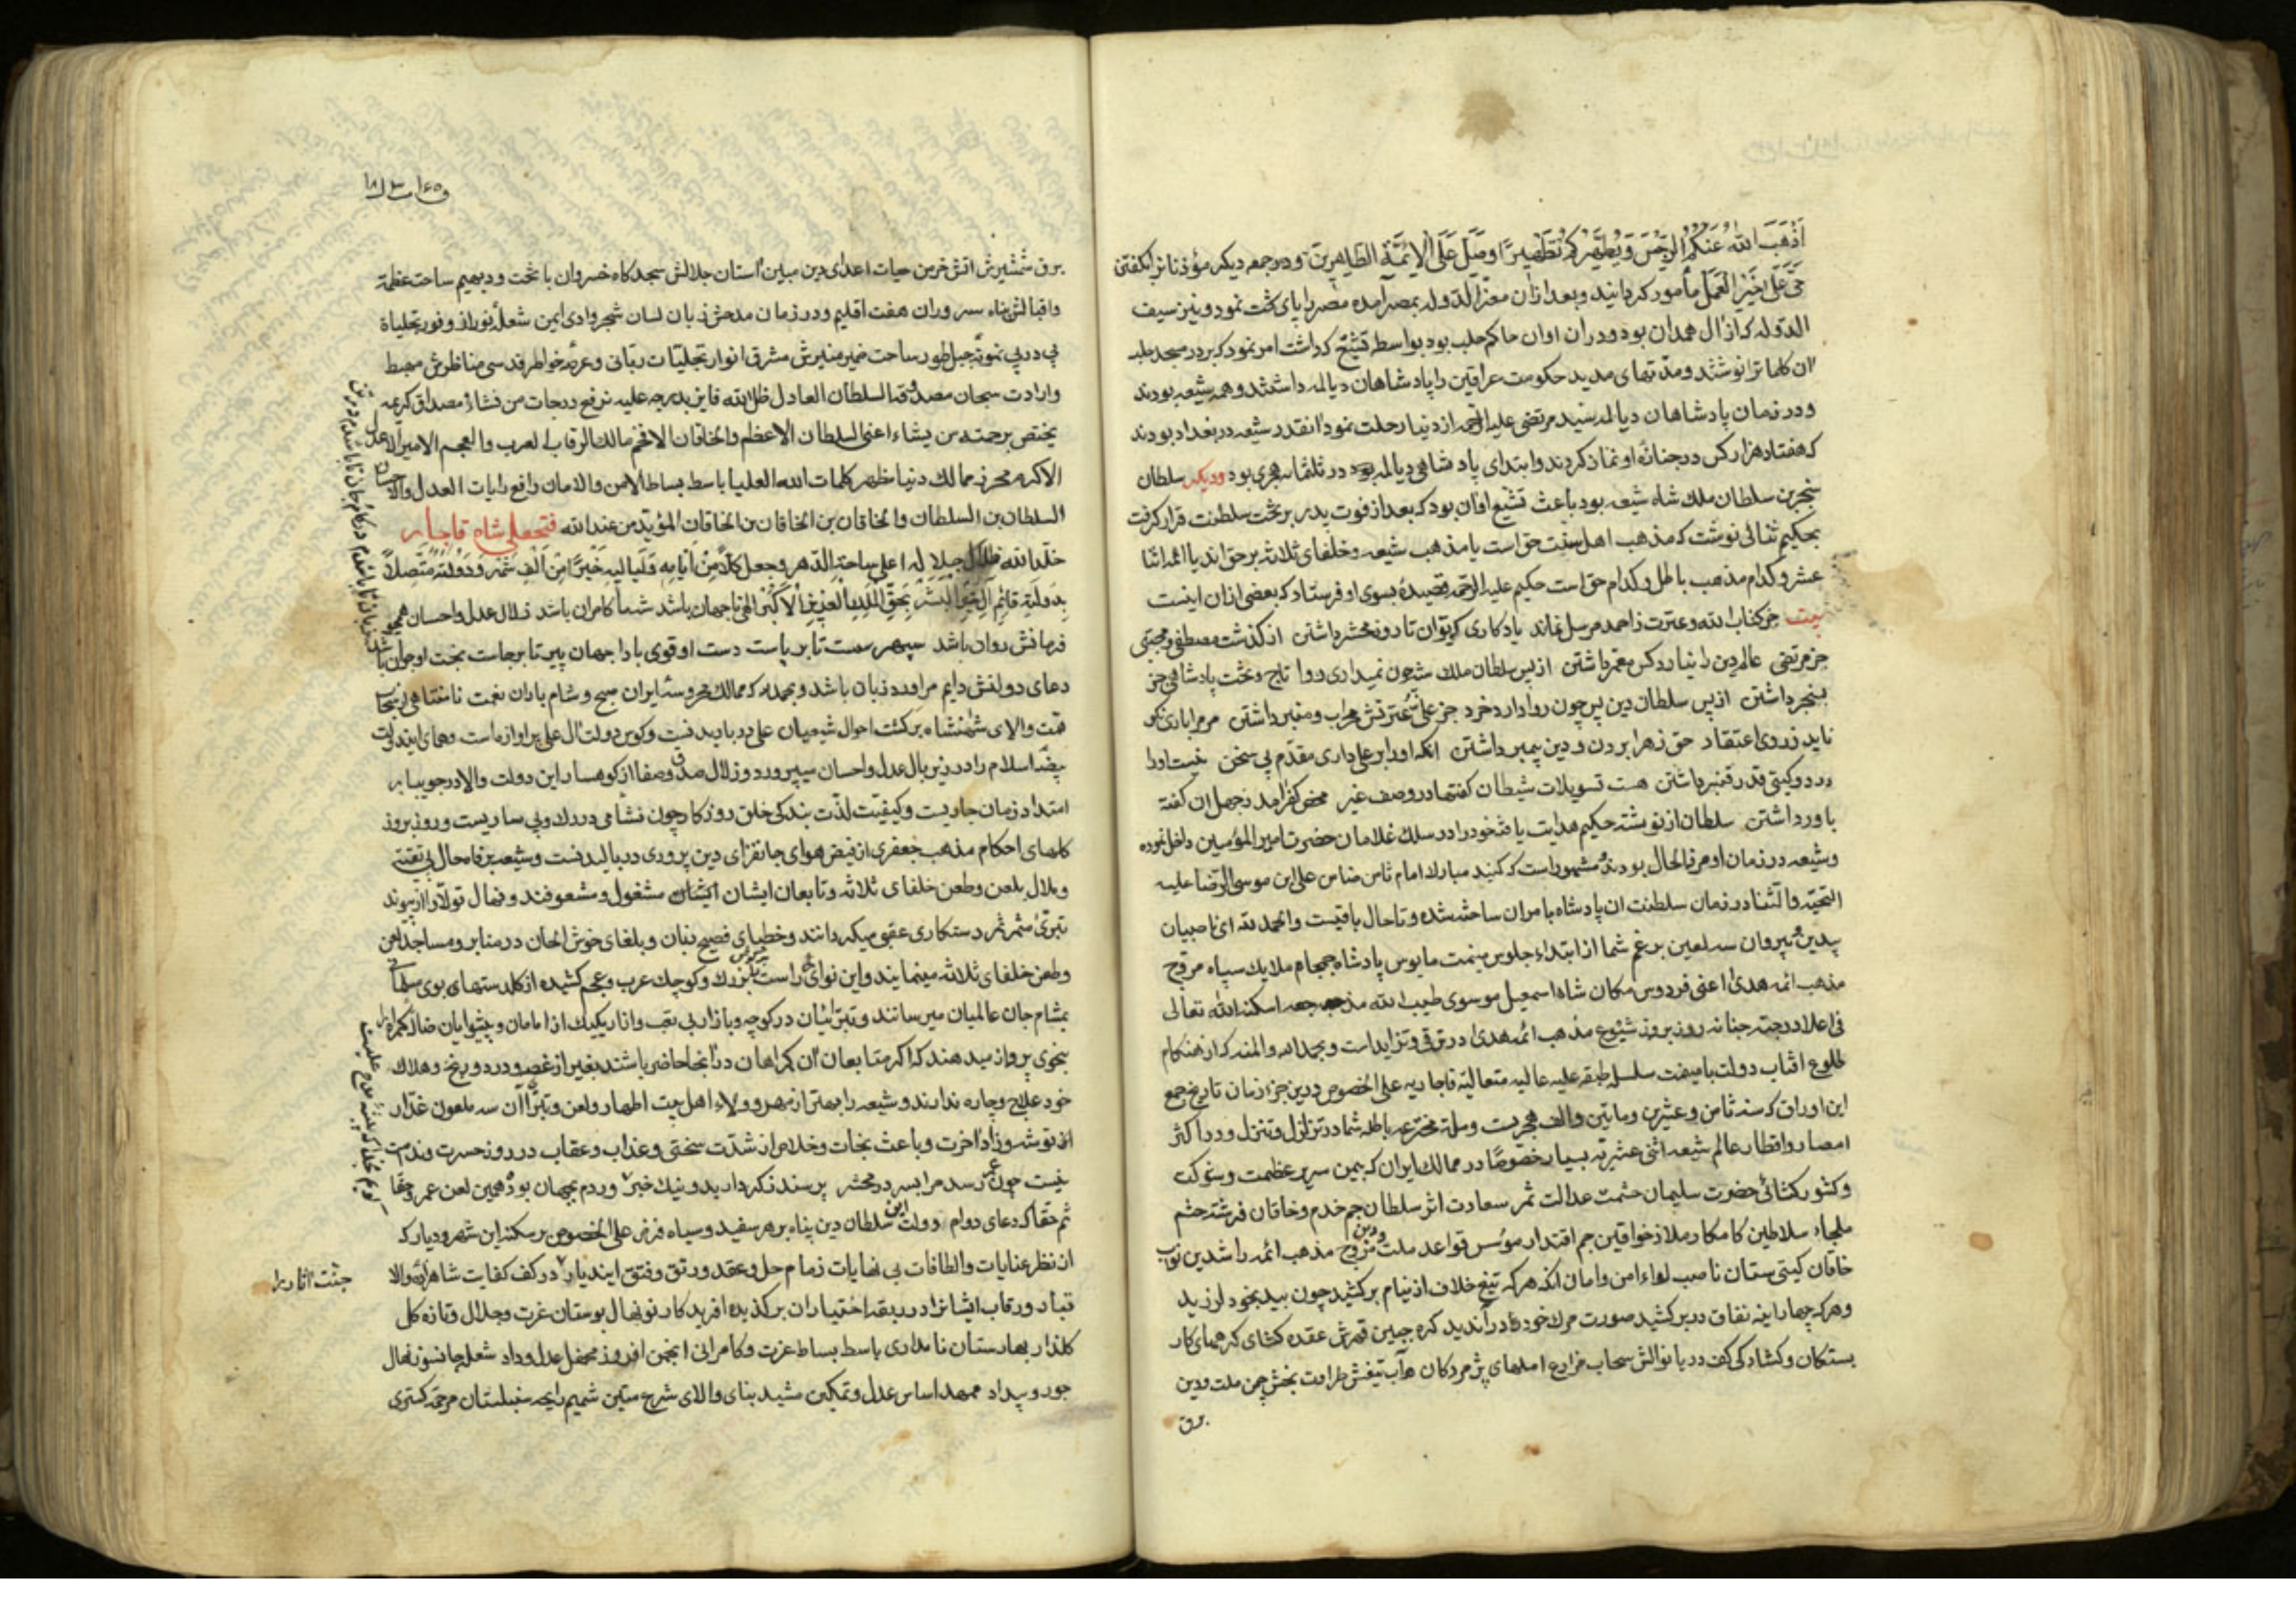 اَذْهَبَ اللّٰهُ عَنْكُمُ الرِّجْسَ وَيُطَهِّرَكُمْ تَطْهِيرًا وصَلِّ عَلَى الْاَئِمَّةِ الطَّاهِرِينَ ودر جمعه دیکر مؤذنانرا بکفتن
حَیَّ عَلَى خَيْرِ الْعَمَلِ مأمور کردانید وبعد ازان معز الدوله بمصر آمده مصر را پای تخت نمود ونیز سیف
الدوله که از آل همدان بود ودران اوان حاکم حلب بود بواسطه تشیّع که داشت امر نمود که بر در مسجد حلب
آن کلماترا نوشتند ومدّتهای مدید حکومت عراقین را پادشاهان دیالمه داشتند وهمه شیعه بودند
ودر زمان پادشاهان دیالمه سید مرتضی علیه الرحمه از دنیا رحلت نمود آنقدر شیعه در بغداد بودند
که هفتاد هزار کس در جنازهٔ او نماز کردند وابتدای پادشاهی دیالمه در ثلثمائه هجری بود ودیکر سلطان
سنجر بن سلطان ملك شاه شیعه بود باعث تشیّع او آن بود که بعد از فوت پدر بر تخت سلطنت قرار کرفت
بحکیم ثنائی نوشت که مذهب اهل سنت حق است یا مذهب شیعه وخلفای ثلاثه بر حق اند یا ائمه اثنا
عشر وکدام مذهب باطل وکدام حق است حکیم علیه الرحمه قصیدهٔ بسوی او فرستاد که بعضی ازان اینست
بیت جز کتاب الله وعترت ز احمد مرسل نماند یادکاری که توان تا روز محشر داشتن از کذشت مصطفی ومجتبی
جز مرتضی عالم دین را نیارد کس معمّر داشتن از پس سلطان ملك شه چون نمیداری روا تاج وتخت پادشاهی جز
بسنجر داشتن از پس سلطان دین پس چون روا دارد خرد جز علی وعترتش محراب ومنبر داشتن مر مرا باری نکو
ناید ز روی اعتقاد حق زهرا بردن ودین پیمبر داشتن آنکه او را بر علی داری مقدم پی سخن نیست او را
در دو کیتی قدر قنبر داشتن هست تسویلات شیطان کفتها در وصف غیر محض کفر آمد ز جهل آن کفته
باور داشتن سلطان از نوشته حکیم هدایت یافته خود را در سلك غلامان حضرت امیر المؤمنین داخل نموده
وشیعه در زمان او مرفه الحال بودند ومشهور است که کنبد مبارك امام ثامن ضامن علی ابن موسی الرضا علیه
التحیّة والثنا در زمان سلطنت آن پادشاه بامر آن ساخته شده وتا حال باقیست والحمد لله ای ناصبیان
بیدین وپیروان سه لعین برغم شما از ابتداء جلوس میمنت مانوس پادشاه جمجاه ملایك سپاه مروّج
مذهب ائمه هدی اعنی فردوس مکان شاه اسمعیل موسوی طیب الله مضجعه اسکنه الله تعالی
فی اعلا درجة جنانه روز بروز شیوع مذهب ائمه هدی در ترقی وتزاید است وبحمد الله والمنه که از هنکام
طلوع افتاب دولت با میمنت سلسله طبقه علیه عالیه متعالیه قاجاریه علی الخصوص درین جزء زمان تاریخ جمع
این اوراق که سنه ثامن وعشرین ومایتین والف هجریست وسلهٔ مخترعه باطله شما در تزلزل وتنزل ودر اکثر
امصار واقطار عالم شیعه اثنی عشریّه بسیار خصوصًا در ممالك ایران که بیمن سریر عظمت وشوکت
وکشور کشائی حضرت سلیمان حشمت عدالت ثمر سعادت اثر سلطان جم خدم وخاقان فرشته حشم
ملجاء سلاطین کامکار ملاذ خواقین جم اقتدار مؤسس قواعد ملت ودین مروّج مذهب ائمه راشدین نوّاب
خاقان کیتی ستان ناصب لواء امن وامان آنکه هر که تیغ خلاف از نیام بر کشید چون بید بخود لرزید
وهر که چهار اینه نفاق در بر کشید صورت مرك خود را در آن دید کره جبین قهرش عقده کشای کرههای کار
بستکان وکشادکی کف دریا نوالش سحاب مزارع املهای پژمردکان وآب تیغش طراوت بخش چمن ملت ودین
برق
برق شمشیرش اتش خرمن حیات اعدای دین مبین آستان جلالش سجدکاه خسروان با تخت ودیهیم ساحت عظمة
واقبالش پناه سروران هفت اقلیم ودر زمان مدحش زبان لسان شجر وادی ایمن شعلهٔ نور از وفور تجلیاة
پی در پی نمونهٔ جبل طور ساحت ضمیر منیرش مشرق انوار تجلیّات ربّانی وعرصه خواطر قدسی مناظرش مهبط
وارادت سبحان مصدوقه السلطان العادل ظل الله فایز بدرجه علیه نرفع درجات من نشاء مصداق کریمه
یختص برحمته من یشاء اعنی السلطان الاعظم والخاقان الافخم مالك الرقاب العرب والعجم الامیر الاعدل
الاکرم محرز ممالك دنیا مظهر کلمات الله العلیا باسط بساط الامن والامان رافع رایات العدل والاحسان
السلطان بن السلطان والخاقان بن الخاقان بن الخاقان المؤیّد من عند الله فتحعلی شاه قاجار
خلّد الله ظلال جلاله اعلى ساحة الدّهر وجعل کلًّا مِنْ اَیّامِهِ وَلَیالیهِ خَیرًا مِنْ اَلْفِ شَهْرٍ وَدَوْلَتَهُ مُتَّصِلاً
بِدَولَةِ قائِمِ آلِ خَیْرِ البَشَرِ بَحَقِّ المَلِكِ العزیز الاکبر الهی تا جهان باشد شه ما کامران باشد زلال عدل واحسان همچو
فرمانش روان باشد سپهر سست تا بر پاست دست او قوی بادا جهان پیر تا برجاست بخت او جوان باشد
دعای دولتش دایم مرا ورد زبان باشد وبحمد لله که ممالك محروسهٔ ایران صبح وشام باران نعمت نامتناهی از سحاب
همّت والای شهنشاه برکشت احوال شیعیان علی در باریدنست وکوس دولت آل علی پر اوازه است وهمای این دولت
بیضهٔ اسلام را در زیر بال عدل واحسان میپرورد وزلال صدق وصفا از کوهسار این دولت والا در جویبار
امتداد زمان جاریست وکیفیّت لذّت بندکی خلق روزکار چون نشأمی در رك وپی ساریست وروز بروز
کلهای احکام مذهب جعفری از فیض هوای جانفزای دین پروری در بالیدنست وشیعه برفاه حال بی تقیّه
وملال بلعن وطعن خلفای ثلاثه وتابعان ایشان مشغول ومشعوفند ونهال تولّا را از پیوند
تبرّئ مثمر ثمر رستکاری عقبی میکردانند وخطبای فصیح بنان وبلغای خوش الحان در منابر ومساجد لعن
وطعن خلفای ثلاثه مینمایند واین نوای راست بزرك وکوچك عرب وعجم کشیده از کلدستهای بوی
بمشام جان عالمیان میرسانند وتبرّائیان در کوچه وبازار بی تعب وازار یکیك از امامان وپیشوایان ضال کمراه را
بنحوی پرواز میدهند که اکر متابعان آن کمراهان در آنجا حاضر باشند بغیر از غصه ودرد ورنج وهلاك
خود علاج وچاره ندارند وشیعه را بهتر از مهر وولاء اهل بیت اطهار ولعن وتبرّاء آن سه ملعون غدّار
توشه وزاد اخرت وباعث نجات وخلاص از شدّت سختی وعذاب وعقاب در روز حسرت وندامت
نیست چون رسد مرا بسر در محشر پرسند ز کردار بد ونیك خبر وردم بجهان بود همین لعن عمر وحقّا
ثم حقّا که دعای دوام دولت این سلطان دین پناه بر هر سفید وسیاه فرض علی الخصوص بر سکنه این شهر ودیار که
از نظر عنایات والطافات بی نهایات زمام حل وعقد ورتق وفتق ایندیار در کف کفایت شاهزادهٔ والا
تبار ورقاب ایشانرا در ربقه اختیار آن برکذیده افریدکار نونهال بوستان عزت وجلال وتازه کل
کلذار بهارستان نامداری باسط بساط عزت وکامرانی انجمن افروز محفل عدل وداد شعله جانسوز نهال
جور وبیداد ممهد اساس عدل وتمکین مشید بنای والای شرع متین شمیم رایحه سنبلستان مرحمت کستری
جنّت اثار را